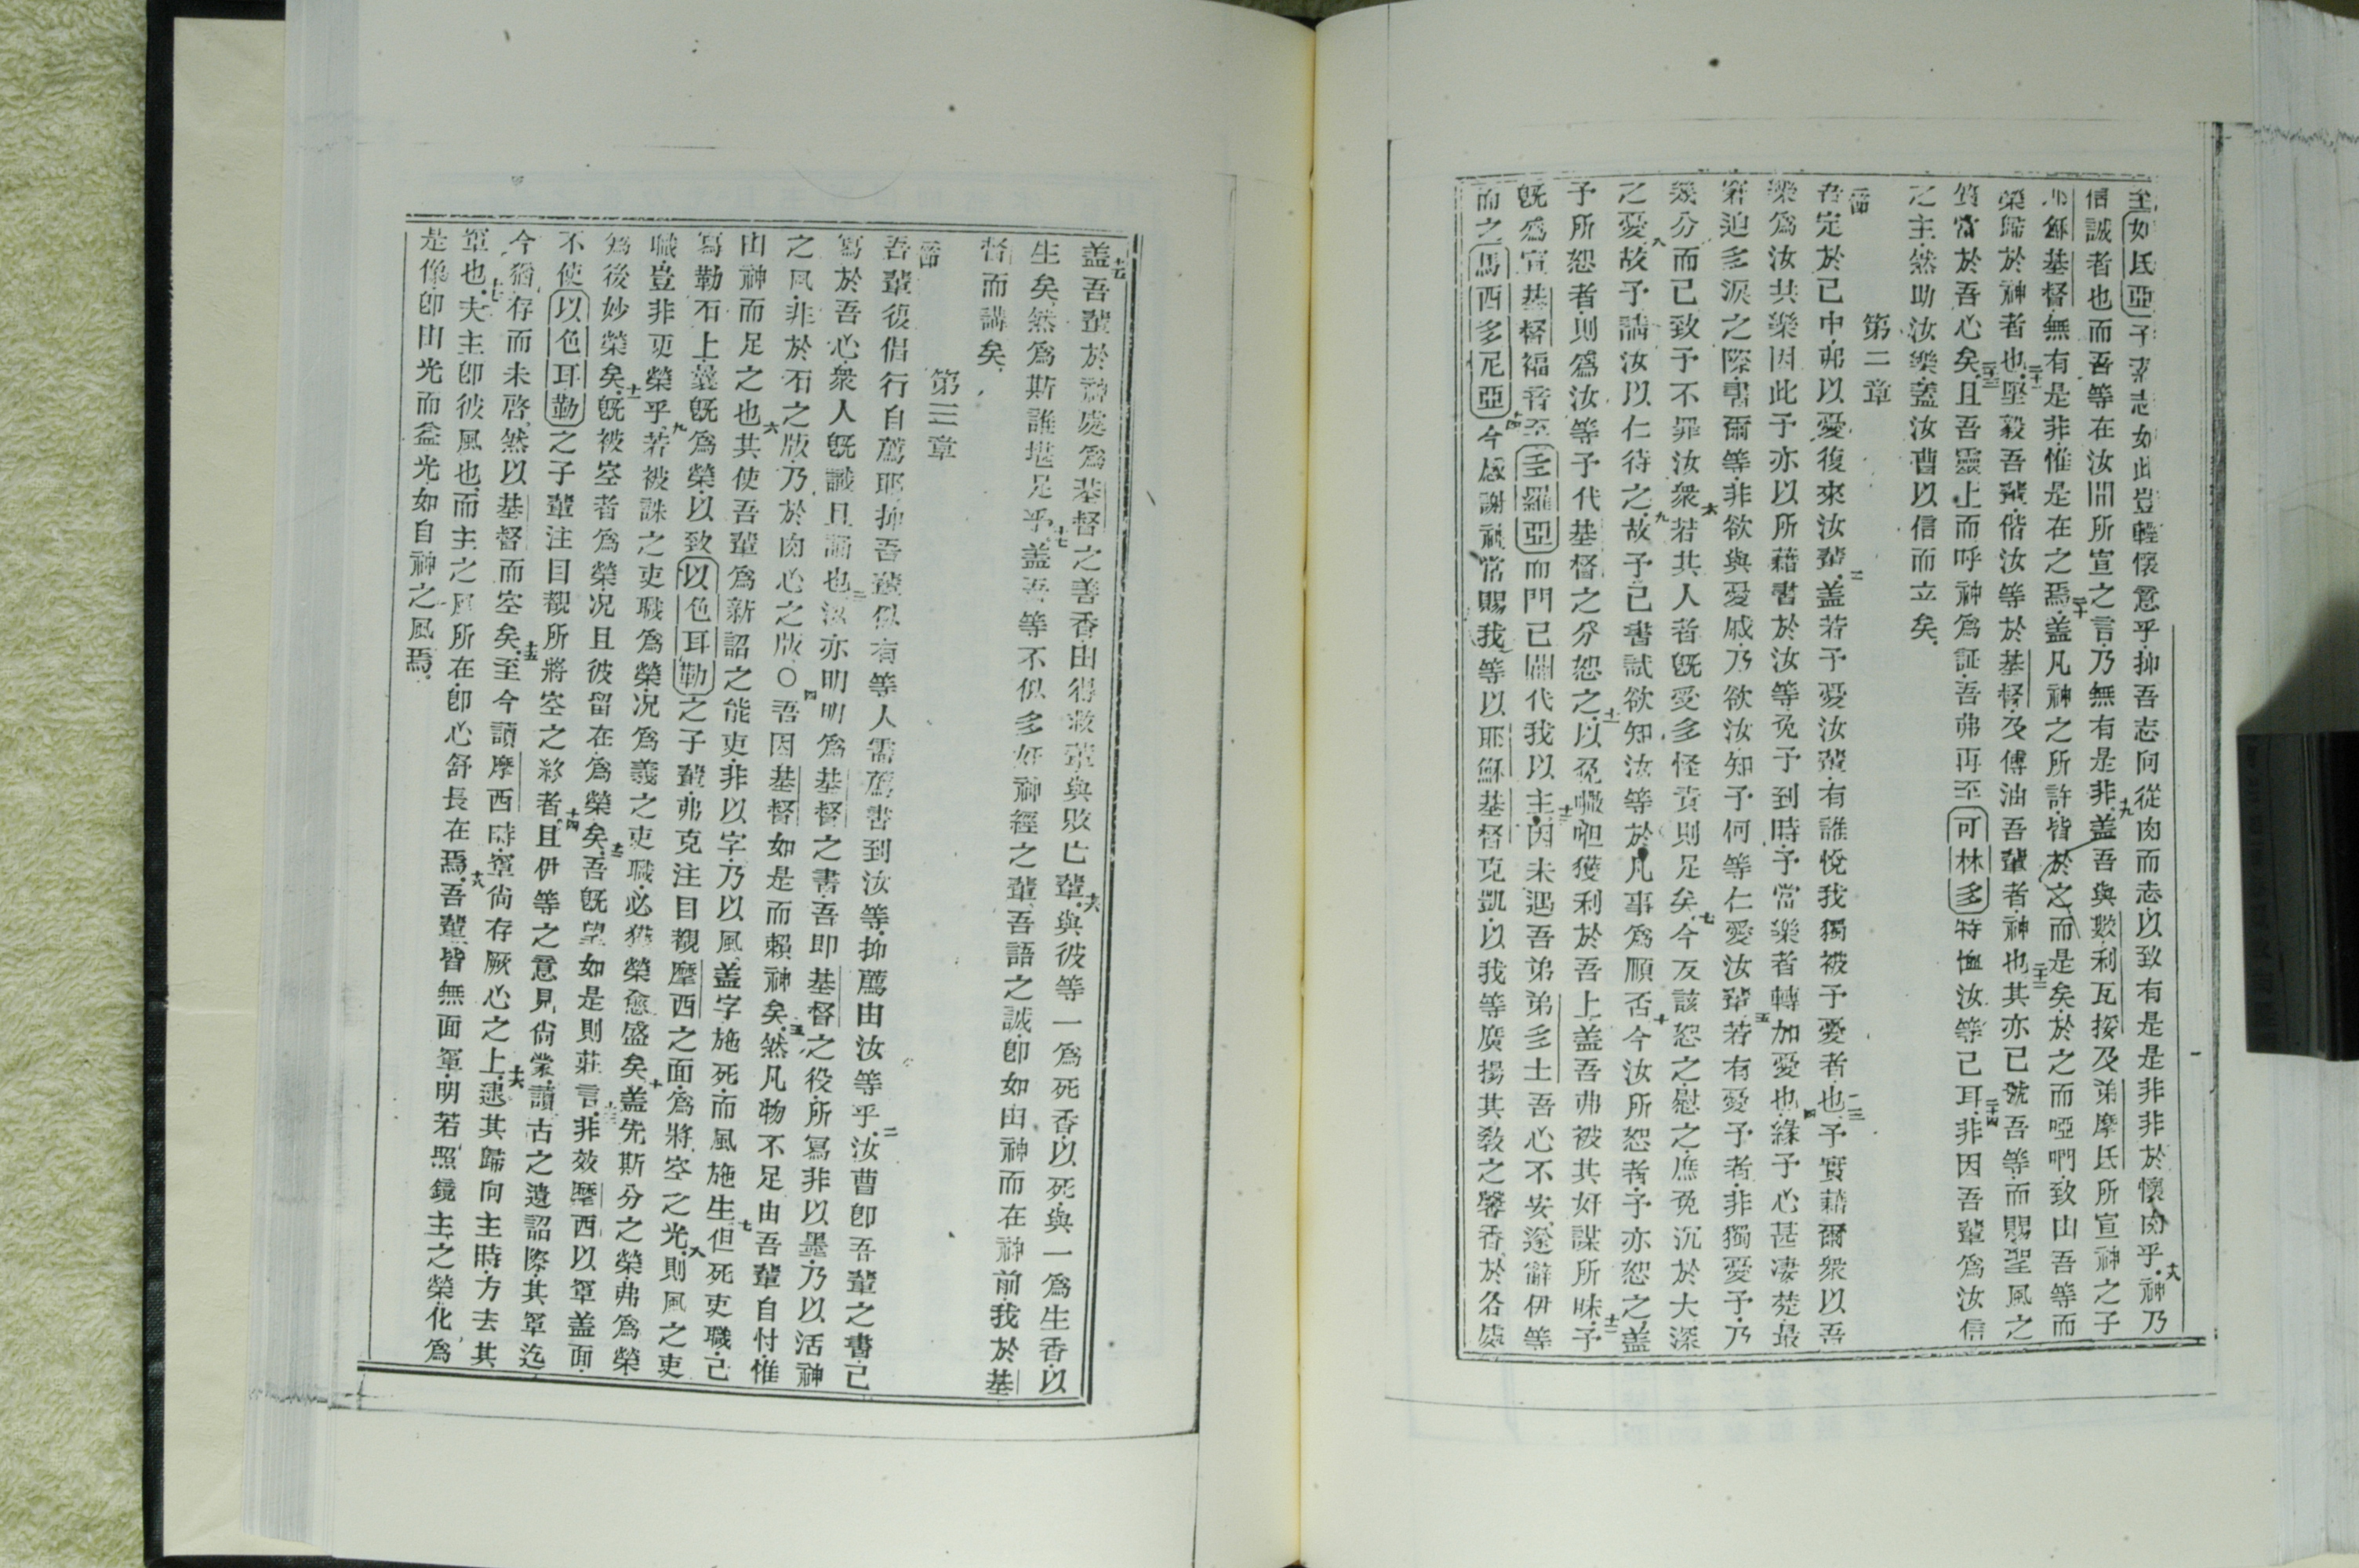 至如氐亞予素志如此豈輕懷意乎抑吾志向從肉而志以致有是是非非於懷肉乎十八神乃
信誠者也而吾等在汝間所宣之言乃無有是非十九蓋吾與數利瓦接及弟摩氐所宣神之子
耶穌基督無有是非惟是在之焉二十蓋凡神之所許皆於之而是矣於之而啞㖿致由吾等而
榮歸於神者也二十一堅毅吾輩偕汝等於基督及傅油吾輩者神也二十二其亦已號吾等而賜聖風之
質當於吾心矣二十三且吾靈上而呼神為証吾弗再至可林多特恤汝等己耳二十四非因吾輩為汝信
之主然助汝樂蓋汝曹以信而立矣
第二章
一節吾定於己中弗以憂復來汝輩二蓋若予憂汝輩有誰悅我獨被予憂者也三予實藉爾衆以吾
樂為汝共樂因此予亦以所藉書於汝等免予到時予當樂者轉加憂也四緣予心甚凄楚最
窘迫多淚之際書爾等非欲與憂慼乃欲汝知予何等仁愛汝輩五若有憂予者非獨憂予乃
幾分而已致予不罪汝衆六若其人者旣受多怪責則足矣七今反該恕之慰之庶免沉於大深
之憂八故予請汝以仁待之九故予己書試欲知汝等於凡事為順否十今汝所恕者予亦恕之蓋
予所恕者則為汝等予代基督之分恕之十一以免㘔呾獲利於吾上蓋吾弗被其奸謀所昧十二予
旣為宣基督福音至𡈼羅亞而門已開代我以主十三因未遇吾弟弟多士吾心不安遂辭伊等
而之馬西多尼亞十四今感謝神常賜我等以耶穌基督克凱以我等廣揚其敎之馨香於各處
十五蓋吾輩於神處為基督之善香由得救輩與敗亡輩十六與彼等一為死香以死與一為生香以
生矣然為斯誰堪足乎十七蓋吾等不似多奸神經之輩吾語之誠卽如由神而在神前我於基
督而講矣
第三章
一節吾輩復倡行自薦耶抑吾輩似有等人需薦書到汝等抑薦由汝等乎二汝曹卽吾輩之書己
寫於吾心衆人旣識且誦也三汝亦明明為基督之書吾即基督之役所寫非以墨乃以活神
之風非於石之版乃於肉心之版○四吾因基督如是而賴神矣五然凡物不足由吾輩自忖惟
由神而足之也六其使吾輩為新詔之能吏非以字乃以風蓋字施死而風施生七但死吏職己
寫勒石上曩旣為榮以致以色耳勒之子輩弗克注目覩摩西之面為將空之光八則風之吏
職豈非更榮乎九若被誅之吏職為榮况為義之吏職必獲榮愈盛矣十蓋先斯分之榮弗為榮
為後妙榮矣十一旣被空者為榮况且彼留在為榮矣十二吾旣望如是則莊言十三非效摩西以罩蓋面
不使以色耳勒之子輩注目覩所將空之跡者十四且伊等之意見尙蒙讀古之遺詔際其罩迄
今猶存而未啓然以基督而空矣十五至今讀摩西時罩尙存厥心之上十六逮其歸向主時方去其
罩也十七夫主卽彼風也而主之風所在卽心舒長在焉十八吾輩皆無面罩明若照鏡主之榮化為
是像卽由光而益光如自神之風焉